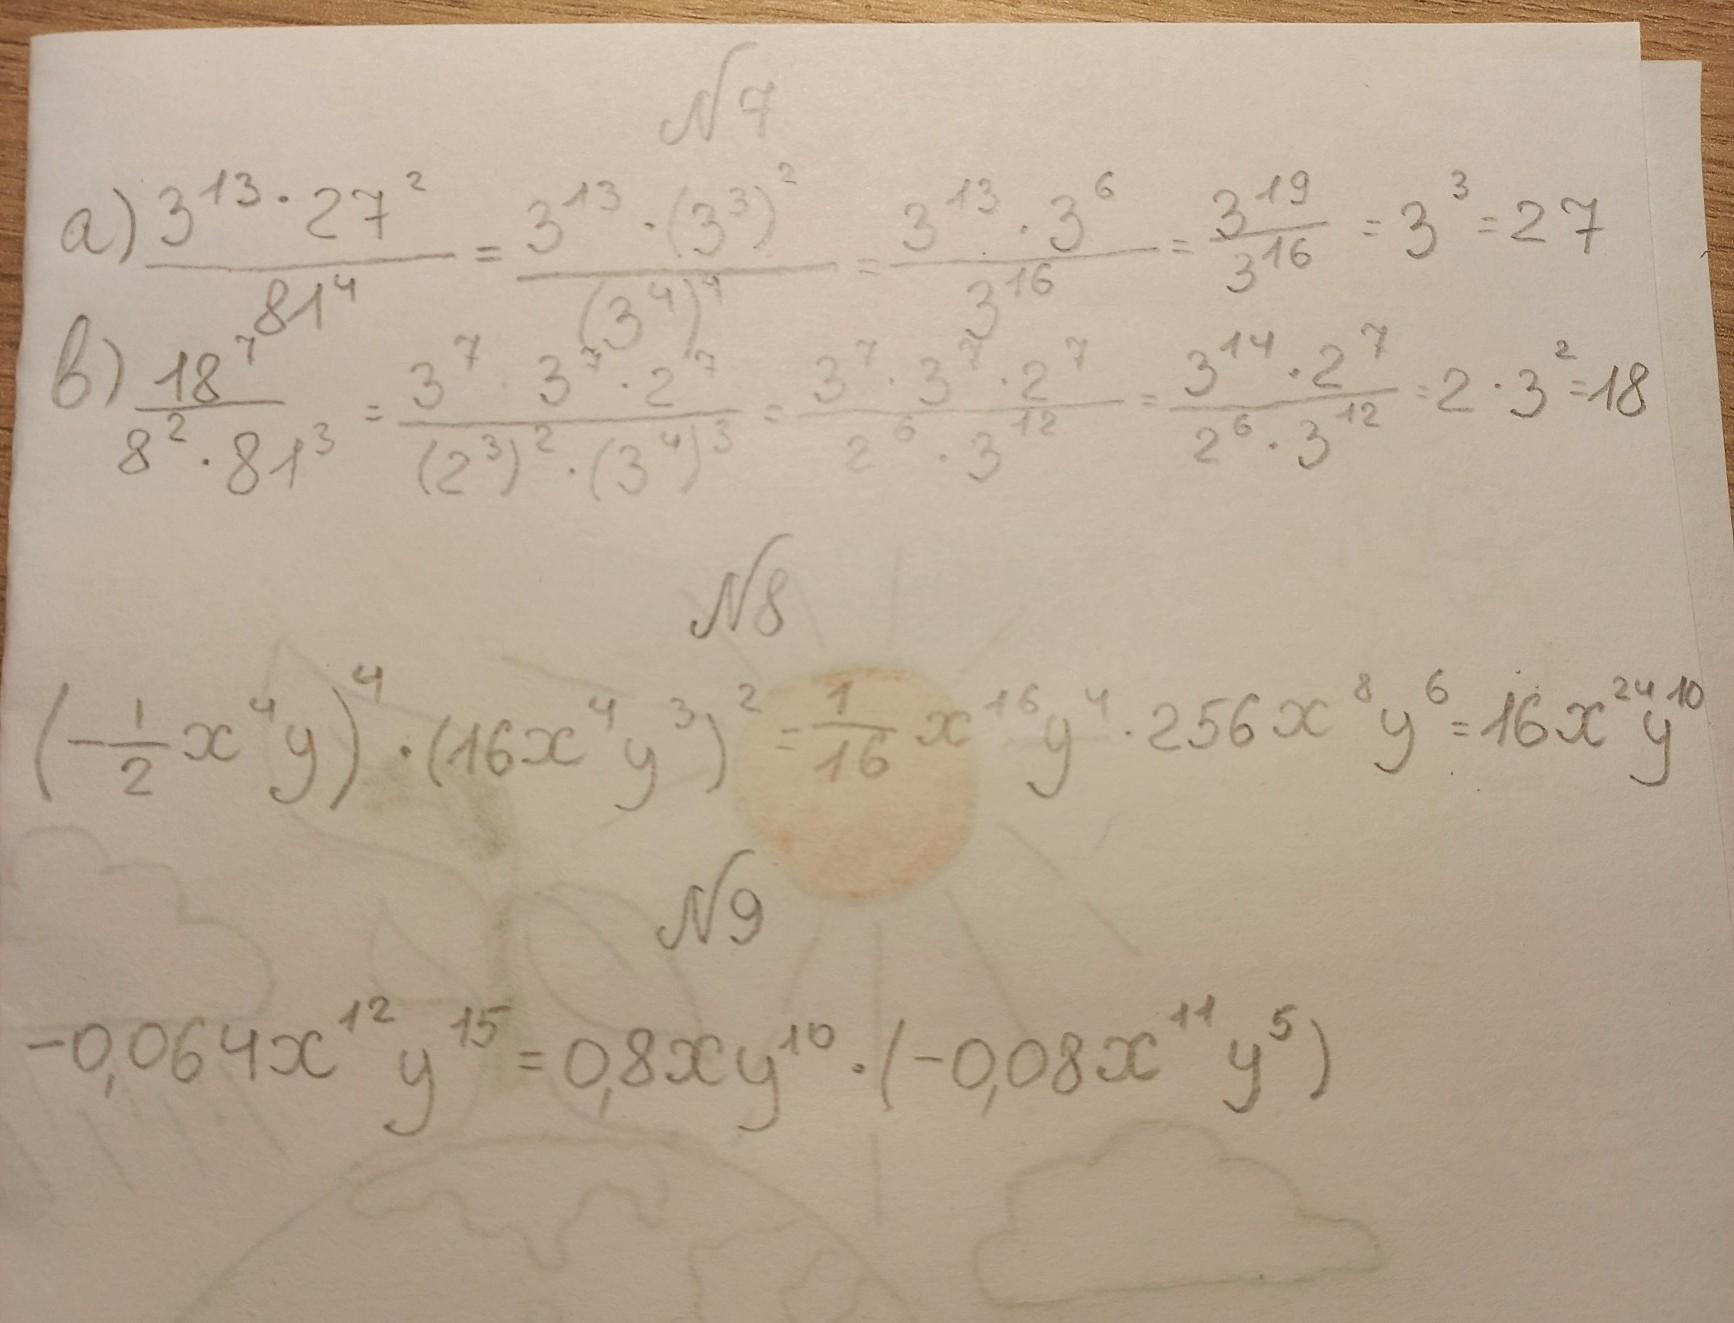 №7
а) \frac{3^{13} \cdot 27^2}{81^4} = \frac{3^{13} \cdot (3^3)^2}{(3^4)^4} = \frac{3^{13} \cdot 3^6}{3^{16}} = \frac{3^{19}}{3^{16}} = 3^3 = 27
в) \frac{18^7}{8^2 \cdot 81^3} = \frac{3^7 \cdot 3^7 \cdot 2^7}{(2^3)^2 \cdot (3^4)^3} = \frac{3^7 \cdot 3^7 \cdot 2^7}{2^6 \cdot 3^{12}} = \frac{3^{14} \cdot 2^7}{2^6 \cdot 3^{12}} = 2 \cdot 3^2 = 18
№8
(-\frac{1}{2}x^4y)^4 \cdot (16x^4y^3)^2 = \frac{1}{16}x^{16}y^4 \cdot 256x^8y^6 = 16x^{24}y^{10}
№9
-0,064x^{12}y^{15} = 0,8xy^{10} \cdot (-0,08x^{11}y^5)